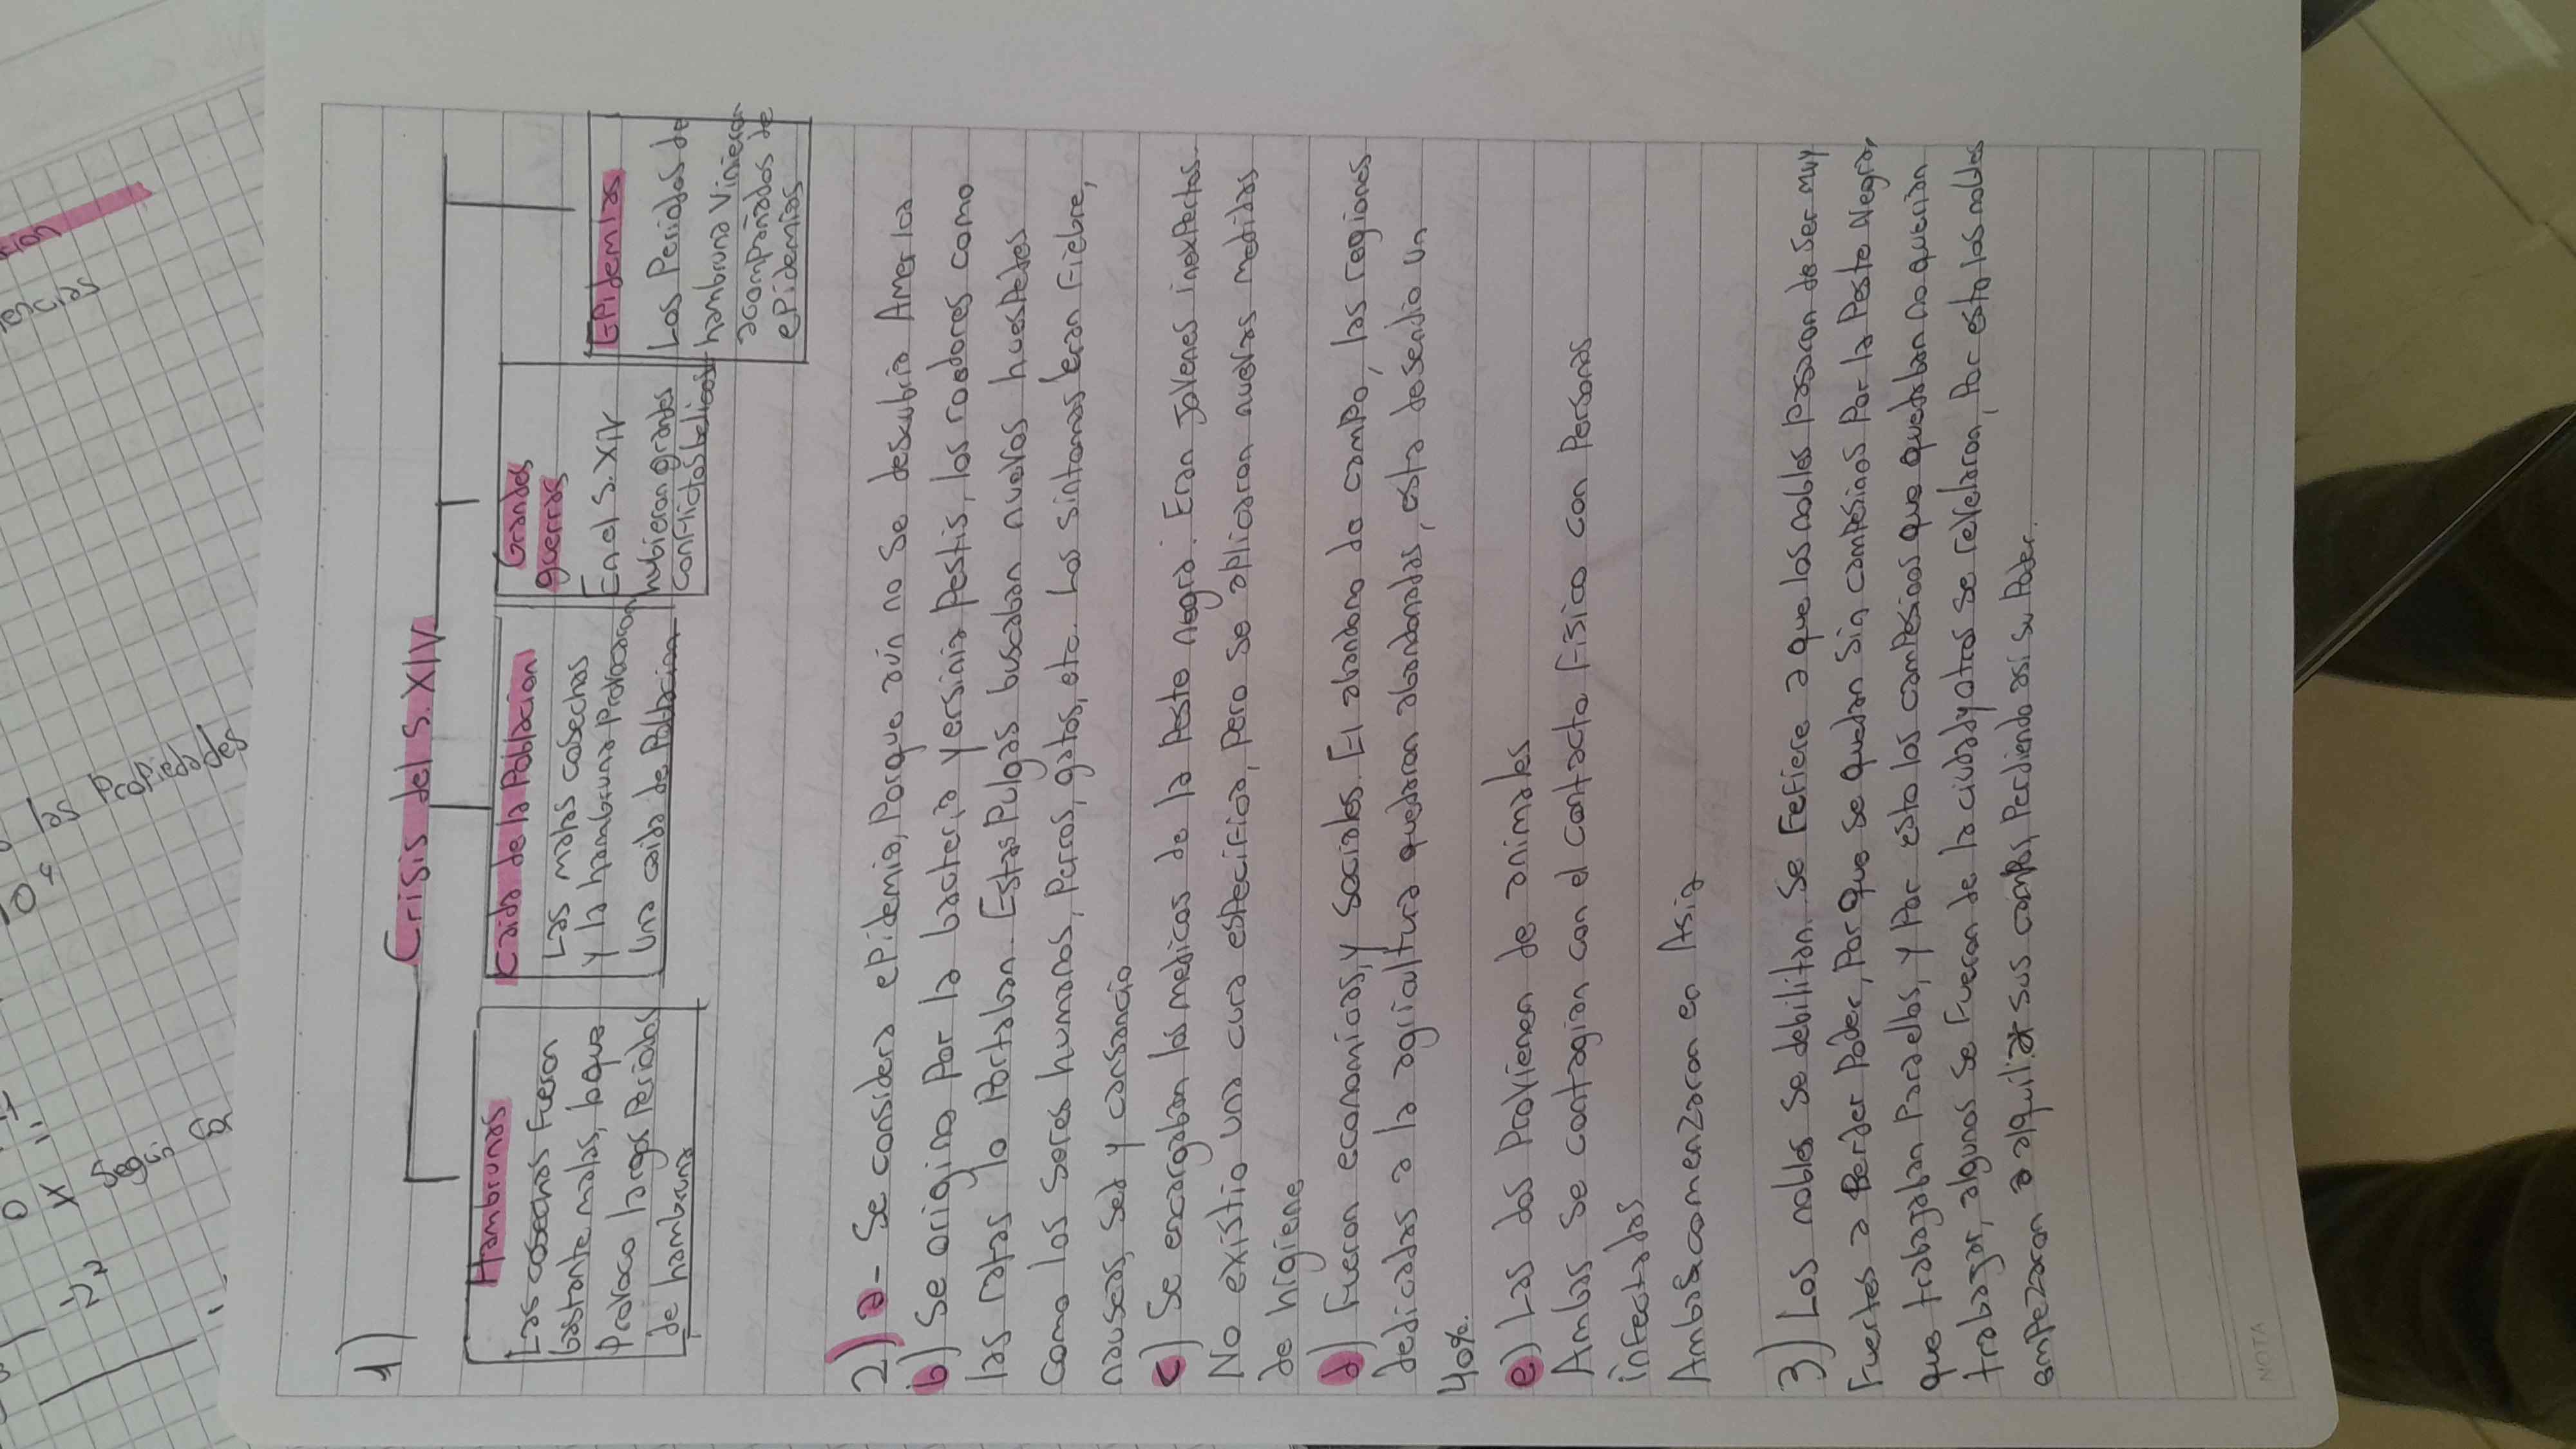 1)
Crisis del S.XIV
Hambrunas
Las cosechas fueron
bastante malas, lo que
Provoco largos Periodos
de hambruna
Caida de la Poblacion
Las malas cosechas
y la hambruna Provocaron
una caida de Poblacion
Grandes
guerras
En el S.XIV
hubieron grandes
conflictos belicos
Epidemias
Los Periodos de
hambruna Vinieron
acompañados de
ePidemias
2) a- Se considera ePidemia, Porque aún no se descubria America
b) Se origino Por la bacteria yersinia Pestis, los roedores como
las ratas lo Portaban. Estas Pulgas buscaban nuevos huesPedes
como los seres humanos, Perros, gatos, etc. Los sintomas eran Fiebre,
nauseas, sed y cansancio
c) Se encargaban los medicos de la Peste negra. Eran Jovenes inexPertos.
No existio una cura esPecifica, Pero se aplicaron nuevas medidas
de higiene
d) Fueron economicas, y sociales. El abandono de camPo, las regiones
dedicadas a la agricultura quedaron abandonadas, esta desendio un
40%.
e) Las dos Provienen de animales
Ambas se contagian con el contacto Fisico con Personas
infectadas
Ambas comenzaron en Asia
3) Los nobles se debilitan. Se Fefiere a que los nobles Pasaron de ser muy
Fuertes a Perder Poder, Por que se quedan sin camPesinos Por la Peste Negra,
que trabajaban Para ellos, y Por esto los camPesinos que quedaban no querian
trabajar, algunos se Fueron de la ciudad y otros se revelaron, Por esto los nobles
emPezaron a alquilar sus camPos, Perdiendo asi su Poder.
NOTA